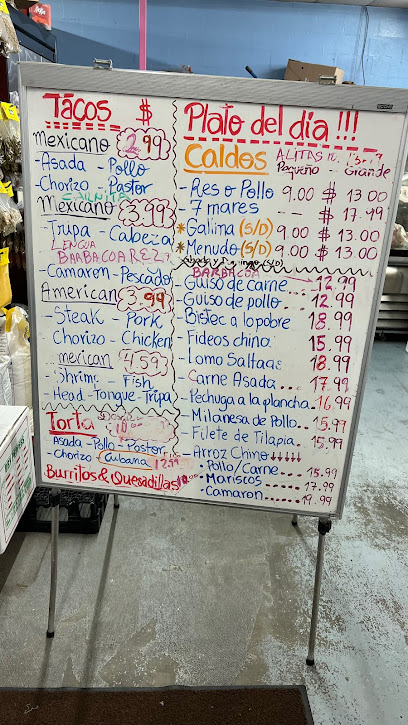 Tacos $
Mexicano 2.99
- Asada - Pollo
- Chorizo - Pastor
Mexicano 3.99
- Tripa - Cabeza
LENGUA
BARBACOA REZ
- Camaron - Pescado
American 3.99
- Steak - Pork
- Chorizo - Chicken
merican 4.59
- Shrimp - Fish
- Head - Tongue - Tripa
Torta 10.00
Asada - Pollo - Pastor
- Chorizo - Cubana 12.99
Burritos & Quesadillas
Plato del dia !!!
Caldos ALITAS
Pequeño - Grande
- Res o Pollo 9.00 $ 13.00
- 7 mares -- $ 17.99
* Gallina (S/D) 9.00 $ 13.00
* Menudo (S/D) 9.00 $ 13.00
BARBACOA
- Guiso de carne ... 12.99
- Guiso de pollo ... 12.99
- Bistec a lo pobre 18.99
- Fideos china 15.99
- Lomo Saltado 18.99
- Carne Asada ... 17.99
- Pechuga a la plancha 16.99
- Milanesa de Pollo .. 15.99
- Filete de Tilapia .. 15.99
- Arroz Chino ↓↓↓↓↓
• Pollo/Carne ... 15.99
• Mariscos ... 17.99
• Camaron ... 19.99